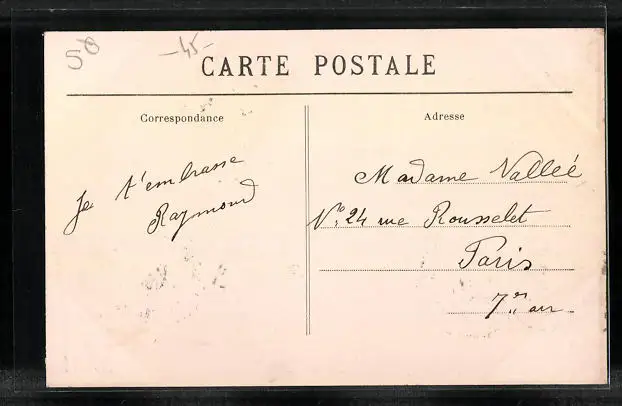 50
-45-
CARTE POSTALE
Correspondance
Adresse
Je t'embrasse
Raymond
Madame Valleé
No. 24 rue Rousselet
Paris
7er arr